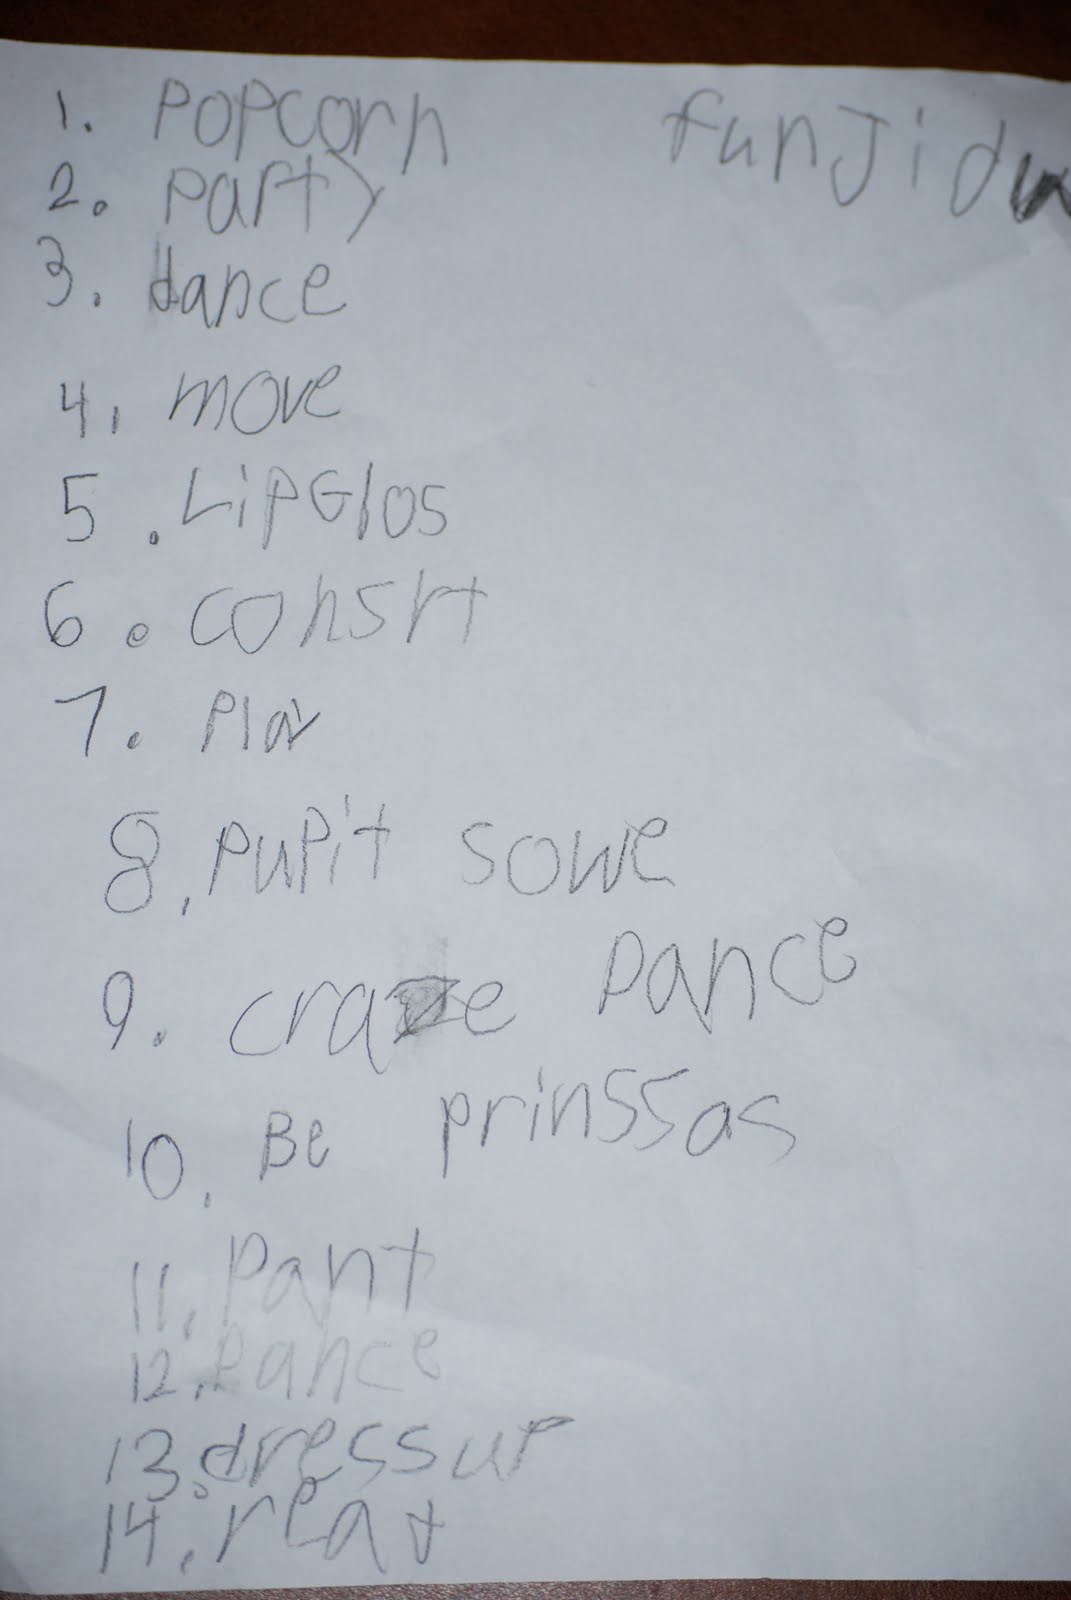 1. Popcorn funJidw
2. party
3. dance
4. move
5. LiPGlos
6. consrt
7. Play
8. PuPit sowe
9. craze Dance
10. Be prinssas
11. Pant
12. Dance
13. dressup
14. reat